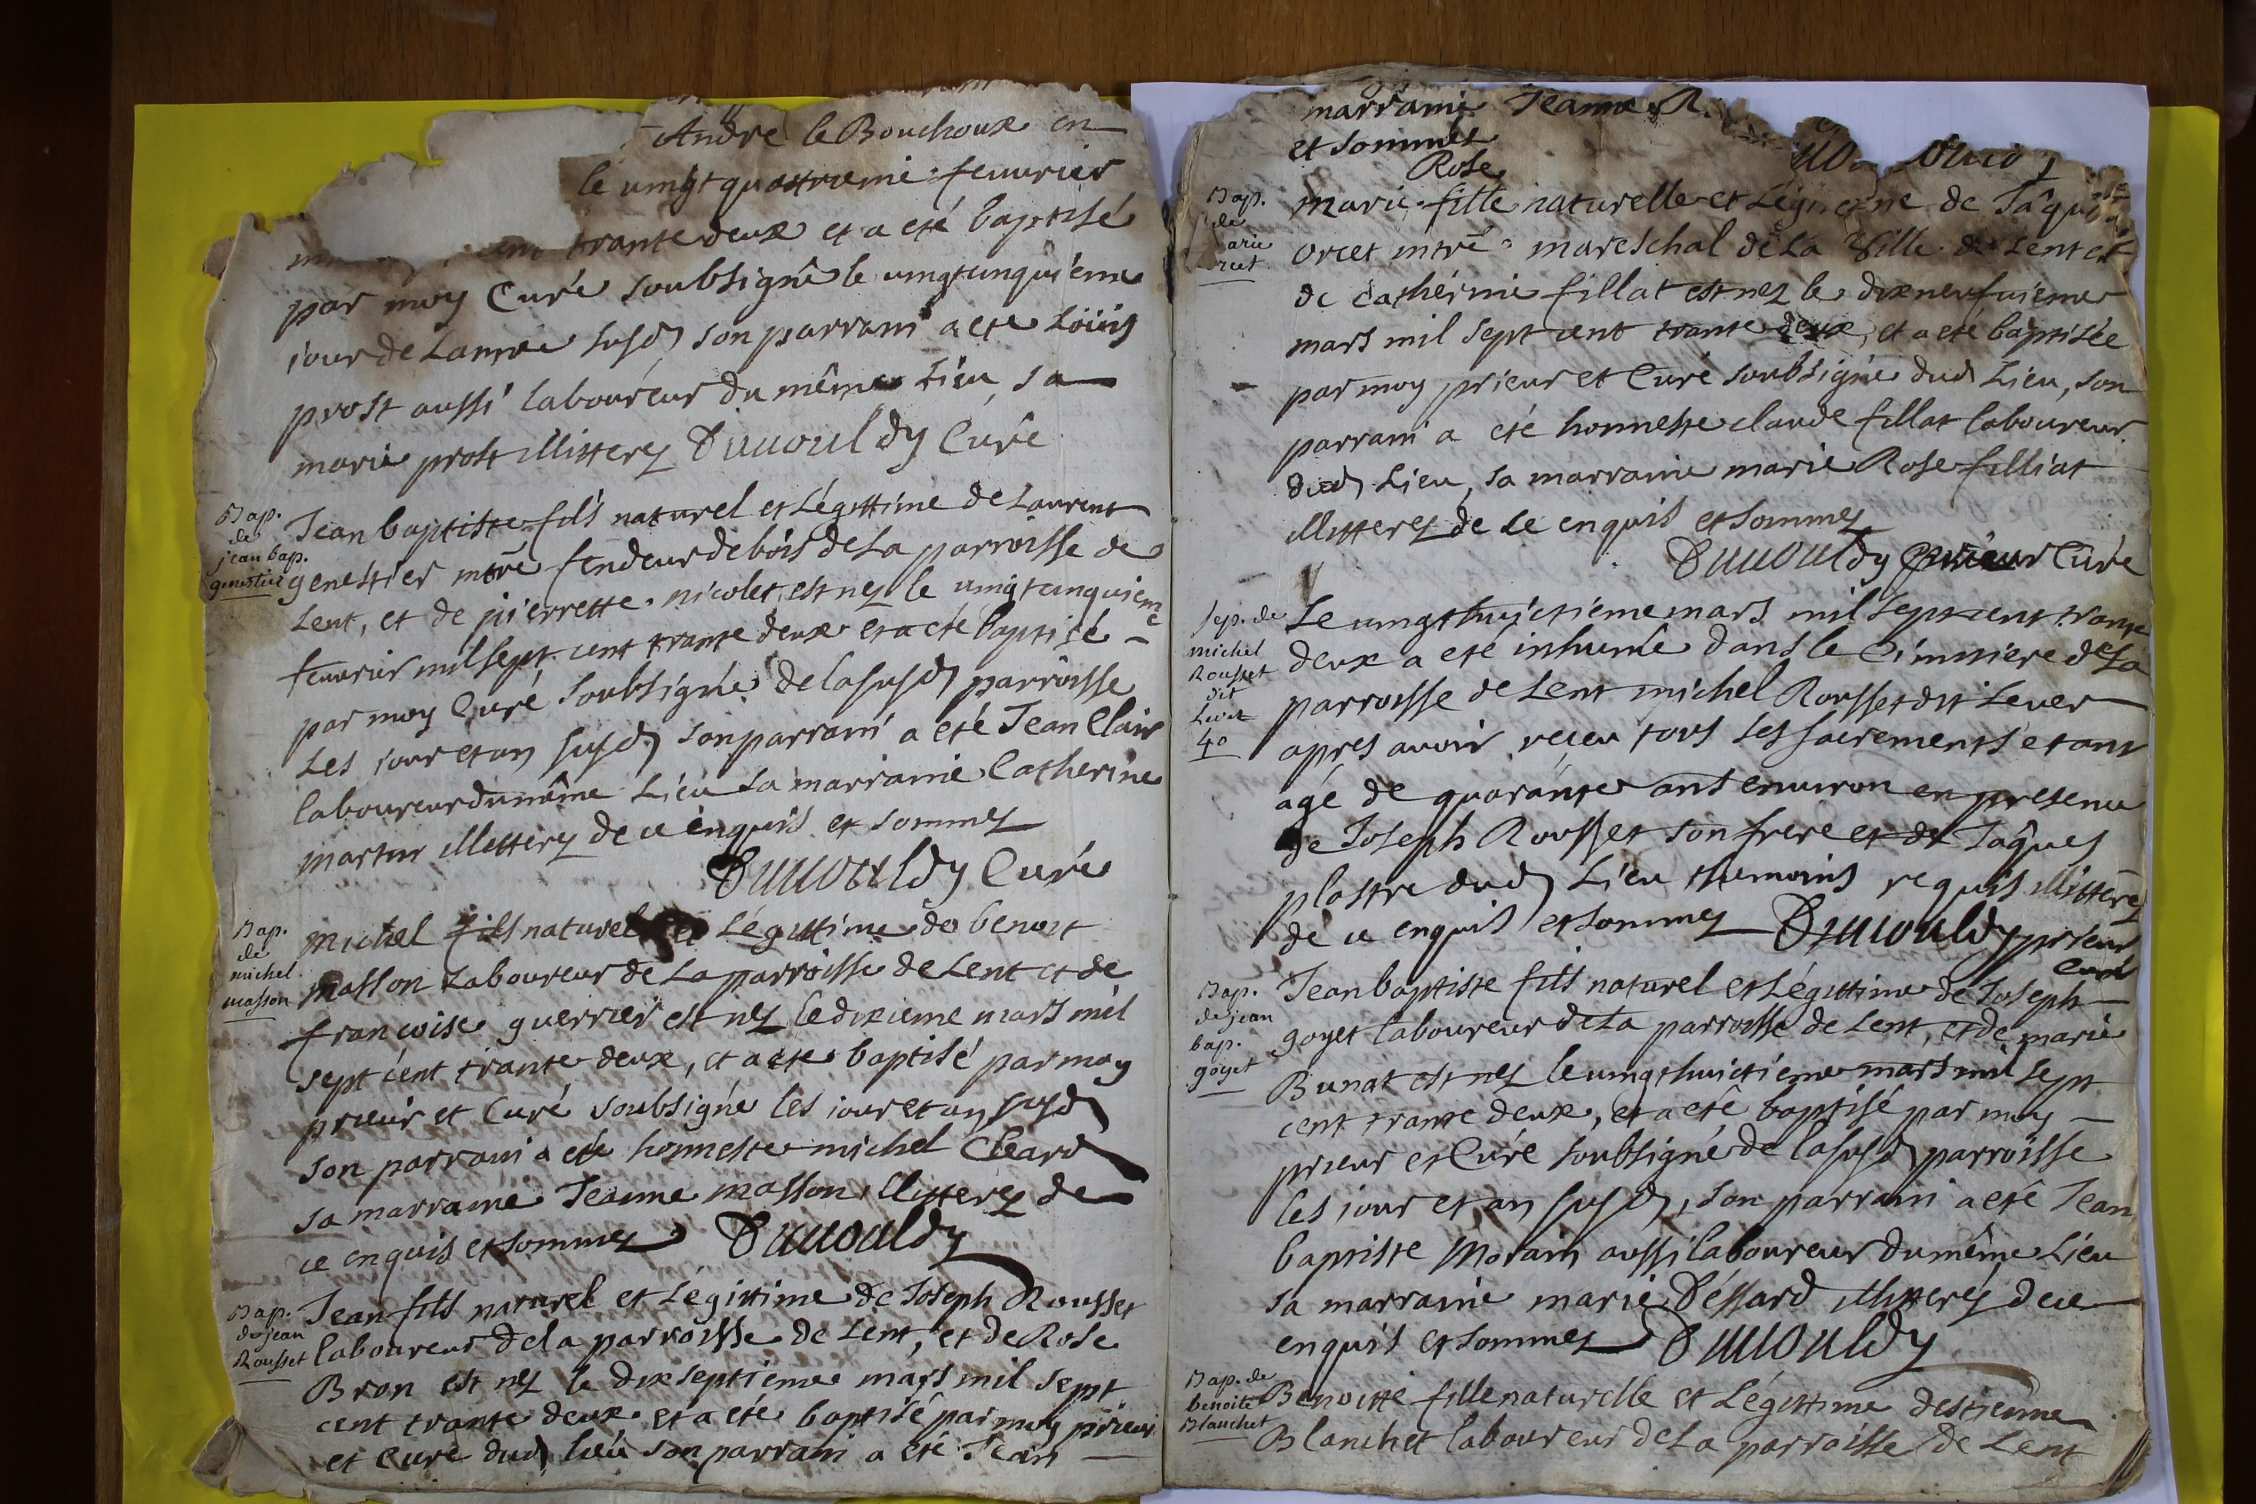 Andre le Bouchoux en
le vingt quattrieme feuurier
trante deux et a eté baptisé
par moy Curé soubsigné le vingtcinquieme
iour de Lannée susd son parrain a eté Loüis
prost aussi laboureur du même Lieu, sa
marie prost illitterez Duuouldy Curé
Bap.
de
jean bap.
genestier
Jean baptiste fils naturel et Légittime de Laurent
genestier mtre fendeur de bois de La parroisse de
Lent, et de pierrette nicolet est nez le vingtcinquieme
feuurier mil sept cent trante deux et a eté baptisé
par moy Curé soubsigné de la susd parroisse
Les iour et an susd, son parrain a eté Jean Clair
laboureur du même Lieu sa marraine Catherine
martin illitterez de ce enquis et sommez
Duuouldy Curé
Bap.
de
michel
masson
michel fils naturel et Légittime de benoit
masson Laboureur de La parroisse de Lent et de
francoise guerrier est nez le dixieme mars mil
sept cent trante deux, et a eté baptisé par moy
prieur et Curé soubsigné les iour et an susd
son parrain a eté honneste michel Cleard
sa marraine Jeanne masson, illitterez de
ce enquis et sommez Duuouldy
Bap.
de jean
Rousset
Jean fils naturel et Légittime de Joseph Rousset
laboureur de la parroisse de Lent, et de Rose
Bron est nez le dixseptieme mars mil sept
cent trante deux et a eté baptisé par moy prieur
et Curé dud lieu son parrain a eté Jean
marraine Jeanne R.
et sommez
Rose
Bap.
de
marie fille naturelle et Légittime de Jâques
orcet mtre mareschal de La Ville de Lent et
de Cathérine fillat est nez le dixneufuieme
mars mil sept cent trante deux, et a eté baptisée
par moy prieur et Curé soubsigné dud Lieu, son
parrain a eté honneste claude fillat laboureur
dud Lieu, sa marraine marie Rose filliat
illitterez de ce enquis et sommez
Duuouldy prieur Curé
sep. de
michel
Rousset
dit
Leuer
40
Le vingthuictieme mars mil sept cent trante
deux a eté inhumé dans le Cimitiere de La
parroisse de Lent michel Rousset dit Leuer
apres auoir reçeu tous Les sacrements etant
agé de quarante ans enuiron en presence
de Joseph Rousset son frere et de Jâques
plastre dud Lieu themoins requis illitterez
de ce enquis et sommez Duuouldy prieur
curé
Bap.
de jean
bap.
goyet
Jean baptiste fils naturel et Légittime de Joseph
goyet laboureur de La parroisse de Lent, et de marie
Bunat est nez le vingthuictieme mars mil sept
cent trante deux, et a eté baptisé par moy
prieur et Curé soubsigné de la susd parroisse
les iour et an susd, son parrain a eté Jean
baptiste Morain aussi laboureur du même Lieu
sa marraine marie Déssard illitterez de ce
enquis et sommez Duuouldy
Bap. de
benoite
Blanchet
Benoitte fille naturelle et Légittime destienne
Blanchet laboureur de La parroisse de Lent